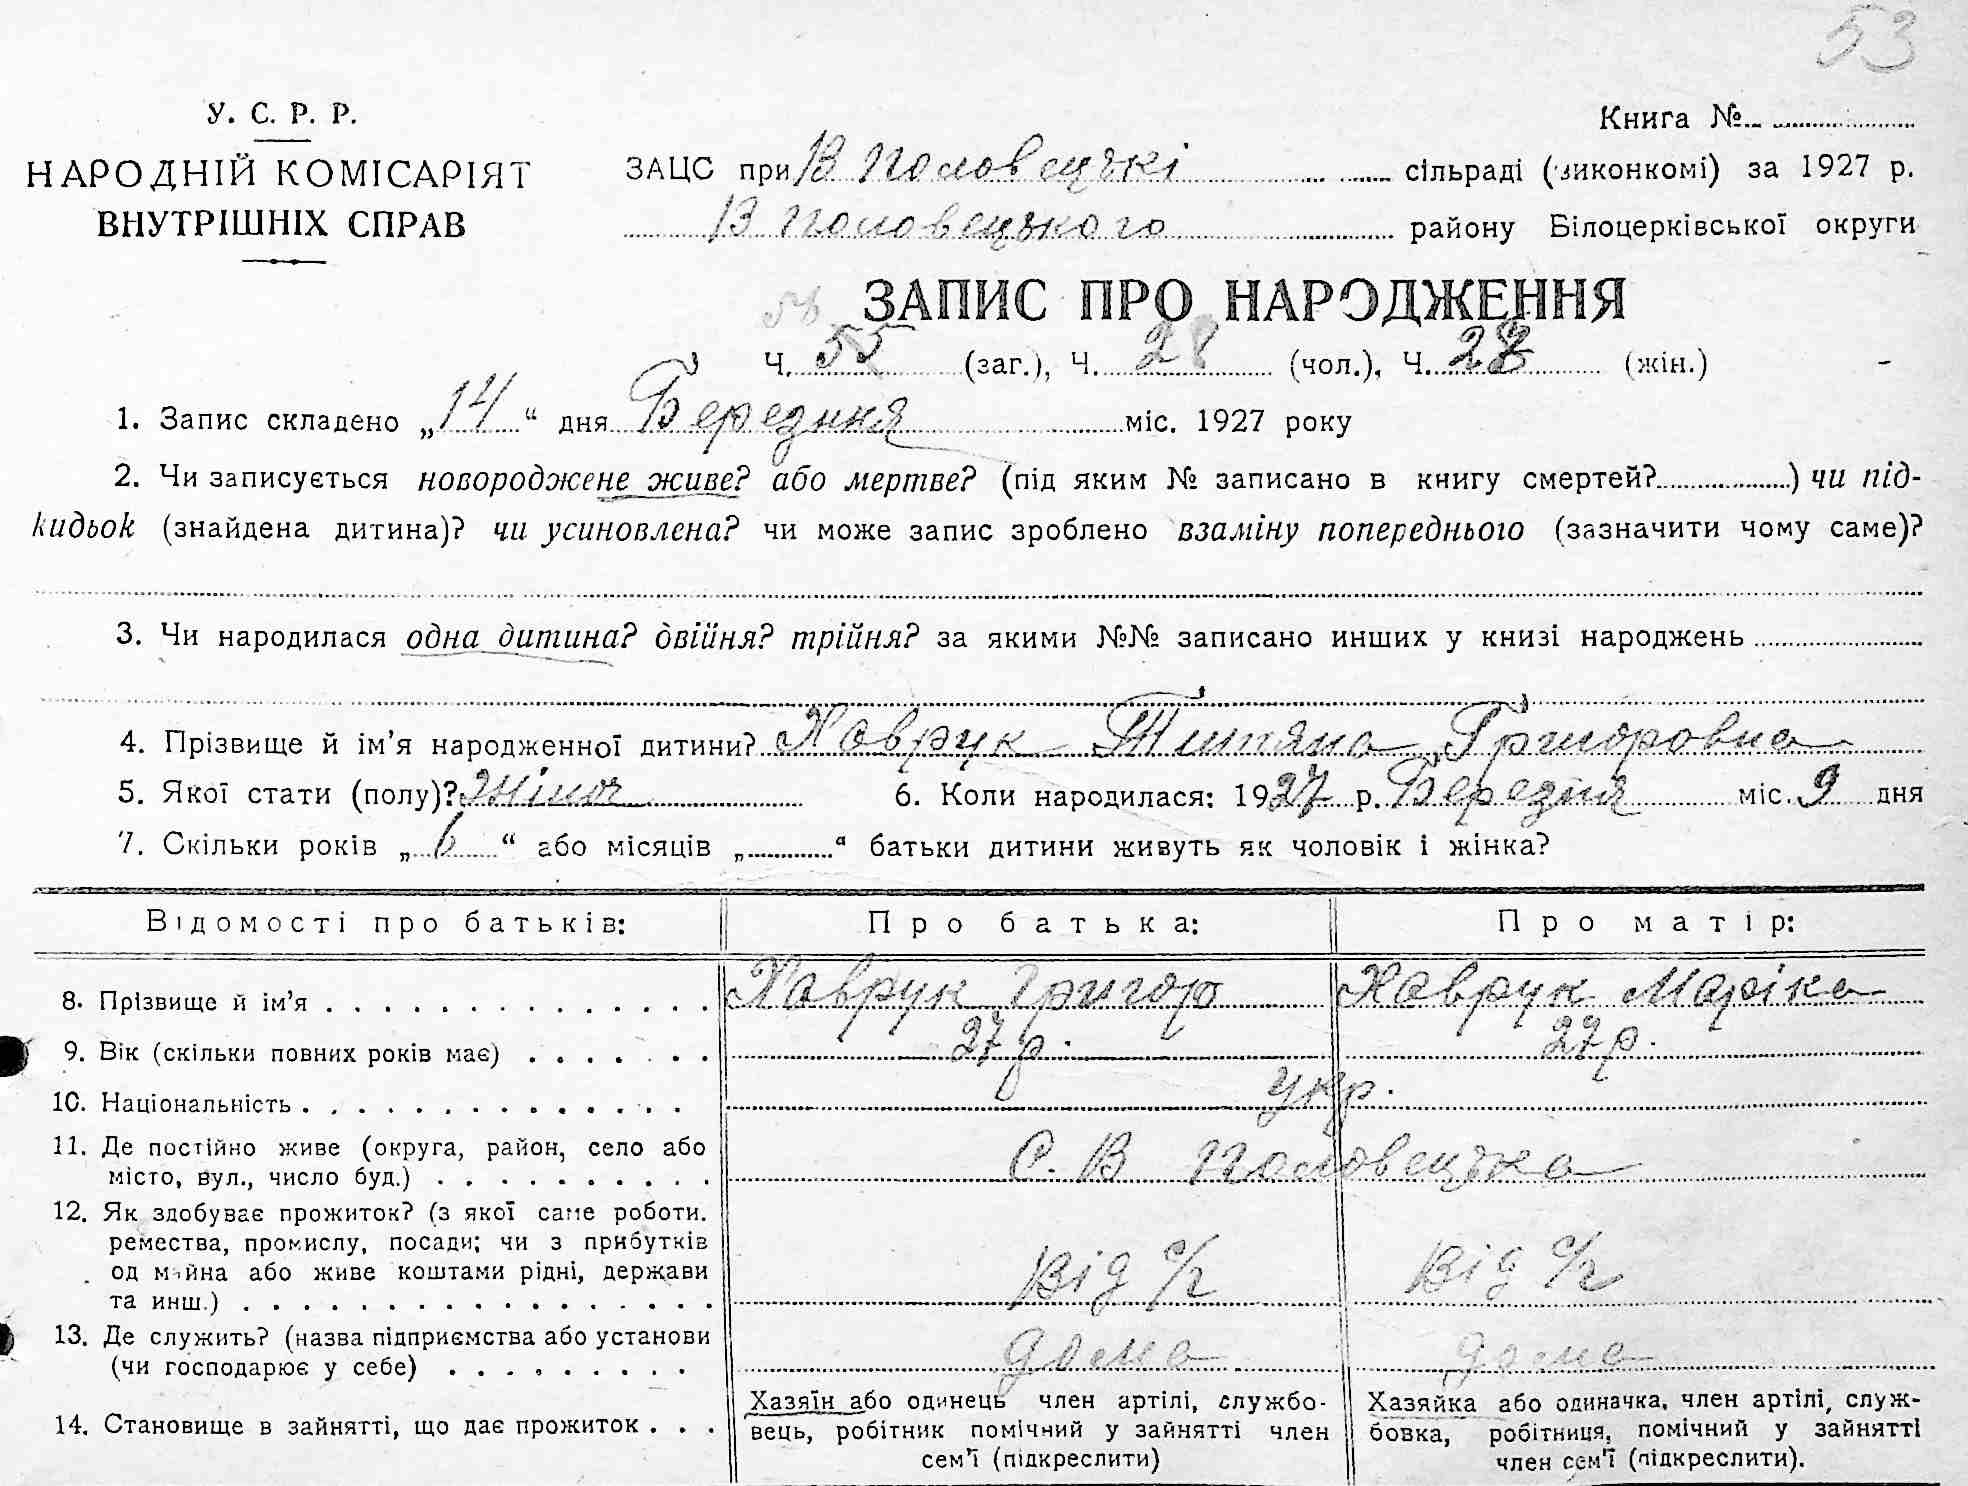 53
У. С. Р. Р.
НАРОДНІЙ КОМІСАРІЯТ
ВНУТРІШНІХ СПРАВ
Книга №
ЗАЦС при В Половецькі сільраді (виконкомі) за 1927 р.
В Половецького району Білоцерківської округи
ЗАПИС ПРО НАРОДЖЕННЯ
Ч. 55 (заг.), Ч. 28 (чол.), Ч. 28 (жін.)
1. Запис складено „14“ дня Березня міс. 1927 року
2. Чи записується новороджене живе? або мертве? (під яким № записано в книгу смертей?) чи під-
кидьок (знайдена дитина)? чи усиновлена? чи може запис зроблено взаміну попереднього (зазначити чому саме)?
3. Чи народилася одна дитина? двійня? трійня? за якими №№ записано инших у книзі народжень
4. Прізвище й ім’я народженної дитини? Ховрук Титяна Григоровна
5. Якої стати (полу)? жіноч 6. Коли народилася: 1927 р. Березня міс. 9 дня
7. Скільки років „6“ або місяців „“ батьки дитини живуть як чоловік і жінка?
Відомості про батьків: Про батька: Про матір:
8. Прізвище й ім’я Ховрук Григор Ховрук Маріка
9. Вік (скільки повних років має) 27 р. 27 р.
10. Національність укр.
11. Де постійно живе (округа, район, село або
місто, вул., число буд.) С. В Половецька
12. Як здобуває прожиток? (з якої саме роботи.
ремества, промислу, посади; чи з прибутків
од майна або живе коштами рідні, держави
та инш.) Від с/г Від с/г
13. Де служить? (назва підприємства або установи
(чи господарює у себе) дома дома
14. Становище в зайнятті, що дає прожиток
Хазяїн або одинець член артілі, службо-
вець, робітник помічний у зайнятті член
сем’ї (підкреслити)
Хазяйка або одиначка, член артілі, служ-
бовка, робітниця, помічний у зайнятті
член сем’ї (підкреслити).